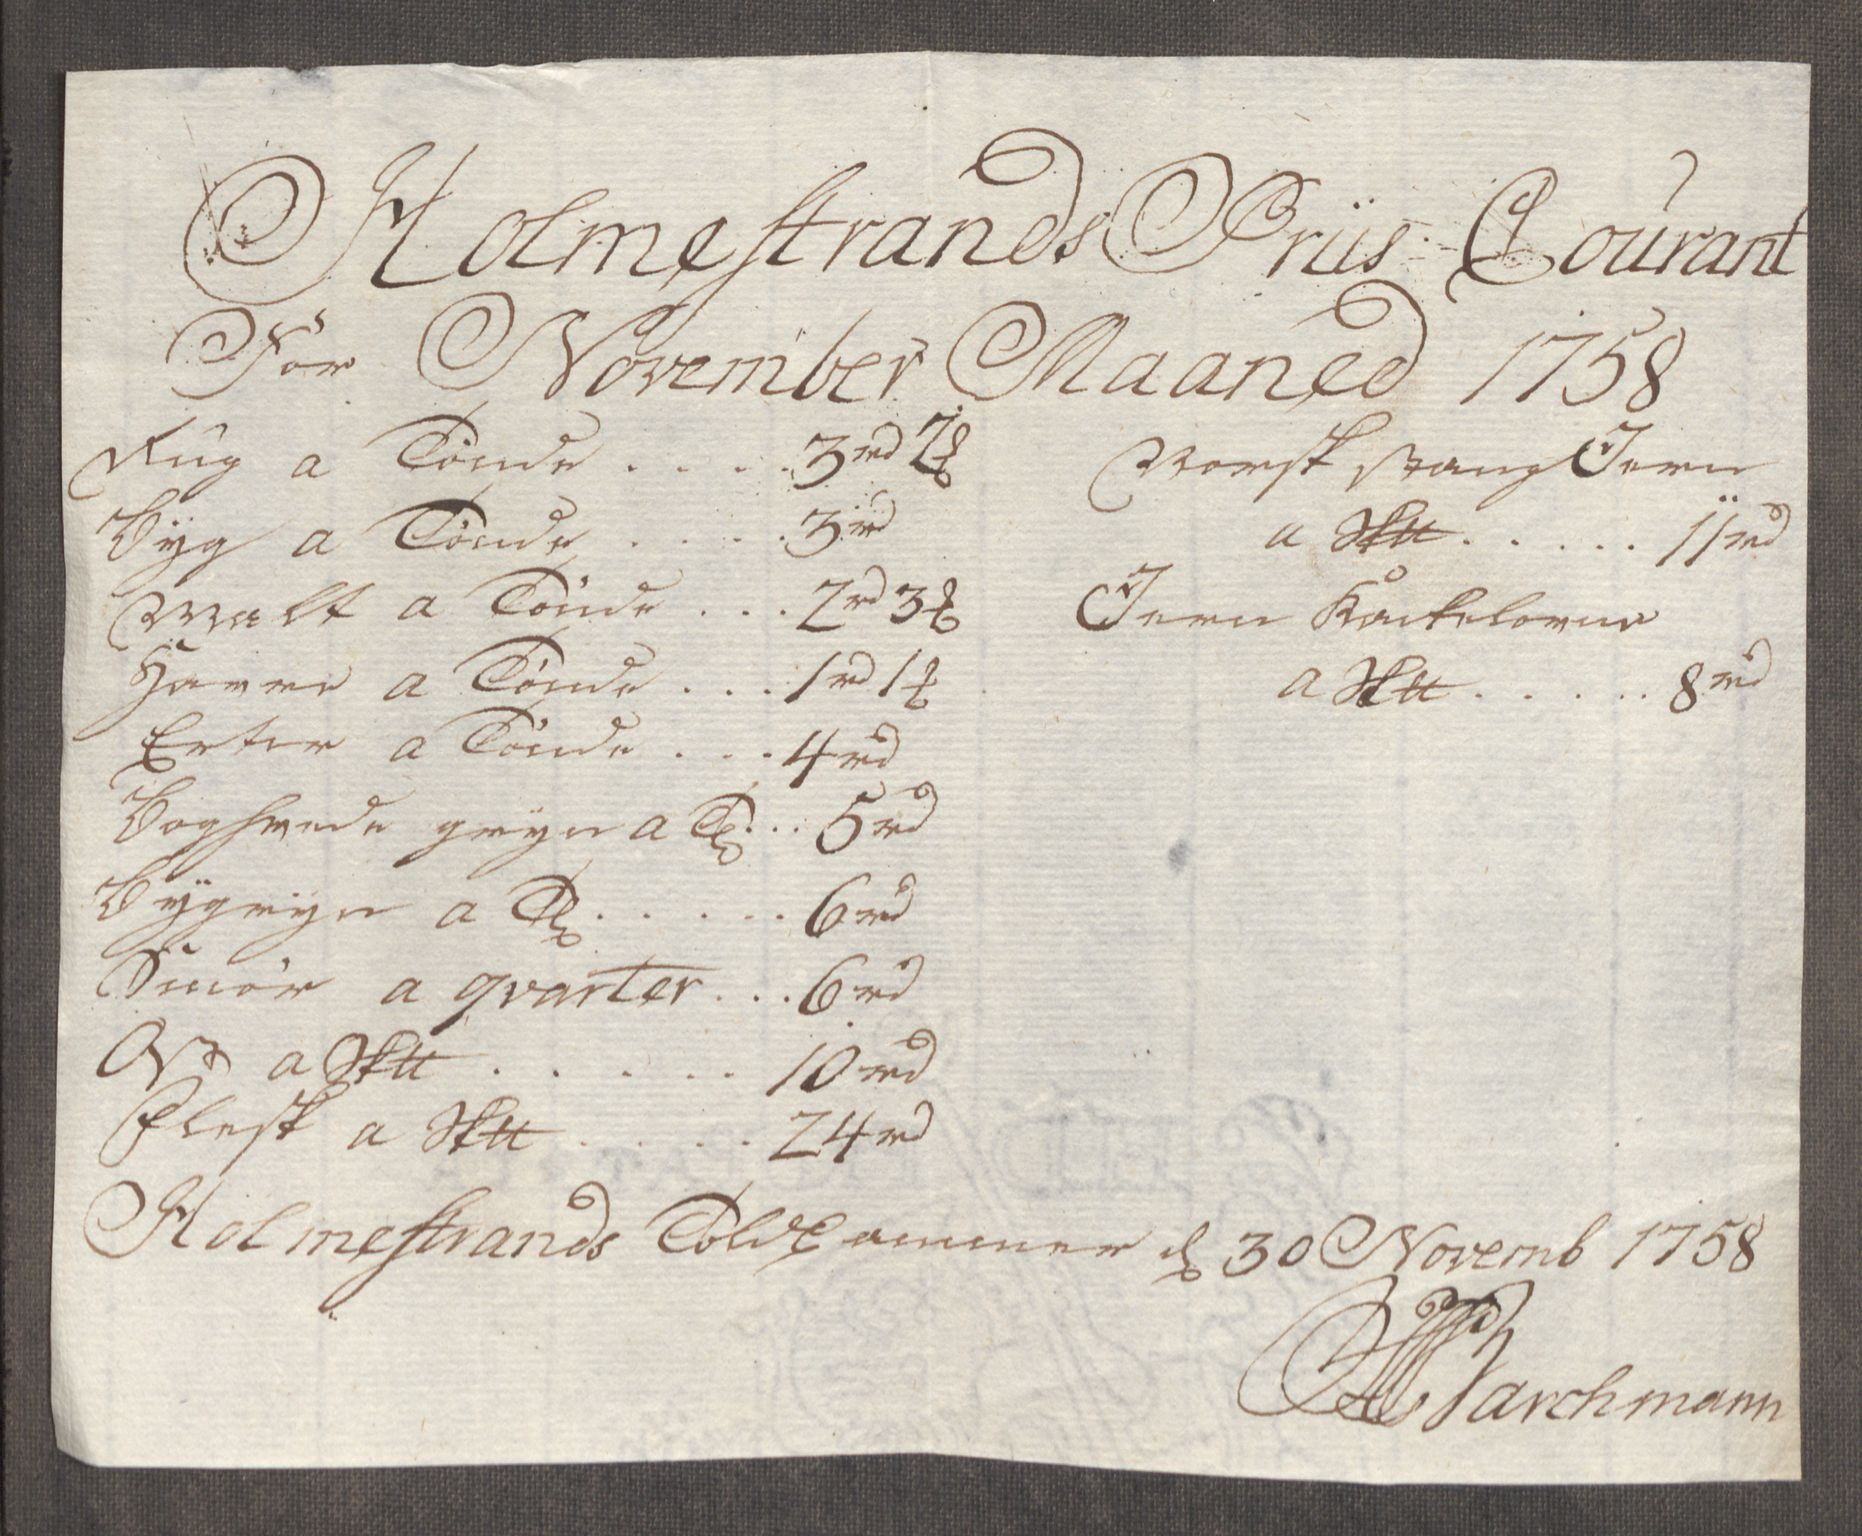 Holmestrands Priis Courant
For November Maaned 1758
Rug a Tönde . . . . . 3 rd 2 ß
Byg a Tönde . . . . . 3 rd
Malt a Tönde . . . 2 rd 3 ß
Havre a Tönde . . . 1 rd 1 ß
Erter a Tönde . . . 4 rd
Boghvede gryn a T . . . 5 rd
Byggryn a T . . . . . 6 rd
Smör a qvarter . . . 6 rd
Ost a S℔ . . . . . . 10 rd
Flesk a S℔ . . . . . 24 rd
Norsk Stang Jern
a S℔ . . . . . 11 rd
Jern Kackelovne
a S℔ . . . . . 8 rd
Holmestrands Told Cammer d 30 Novemb 1758
Barchmann